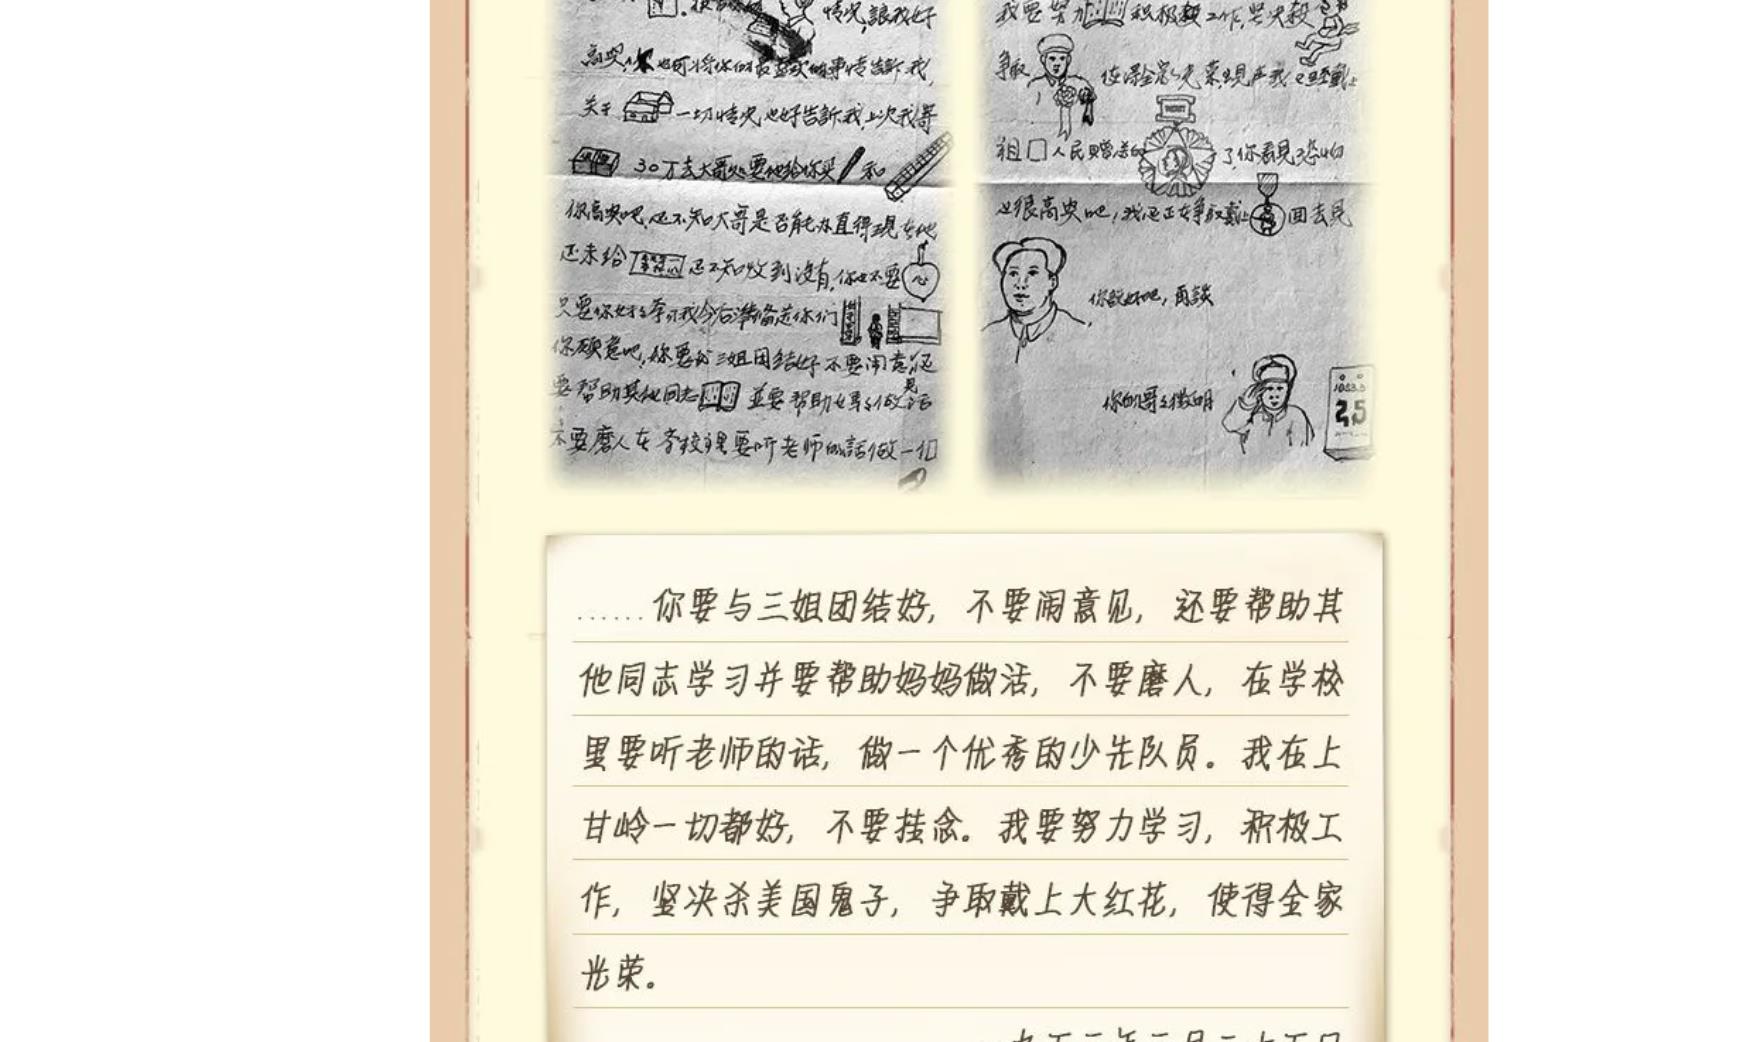 情况,讓我好
高興,
也可将你们最喜欢的事情告訴我,
关于
一切情况也好告訴我,上次我寄
30万去大哥处要他给你买
和
你高興吧,还不知大哥是否能办直得現在他
还未给
还不知收到没有,你也不要
心
只要你好好学习我今后準備送你们
你願意吧,你要与三姐团结好不要闹意見还
要帮助其他同志
並要帮助妈妈做活
不要磨人在学校里要听老师的話做一个
我要努力
积极工作,坚决殺
争取
使得全家光荣,現在我已经戴上
祖
人民赠送的
了你看見恐怕
也很高興吧,我还正在争取戴上
回去見
你説好吧,再談
你的哥哥徵明
1953.2
25
……你要与三姐团结好,不要闹意见,还要帮助其
他同志学习并要帮助妈妈做活,不要磨人,在学校
里要听老师的话,做一个优秀的少先队员。我在上
甘岭一切都好,不要挂念。我要努力学习,积极工
作,坚决杀美国鬼子,争取戴上大红花,使得全家
光荣。